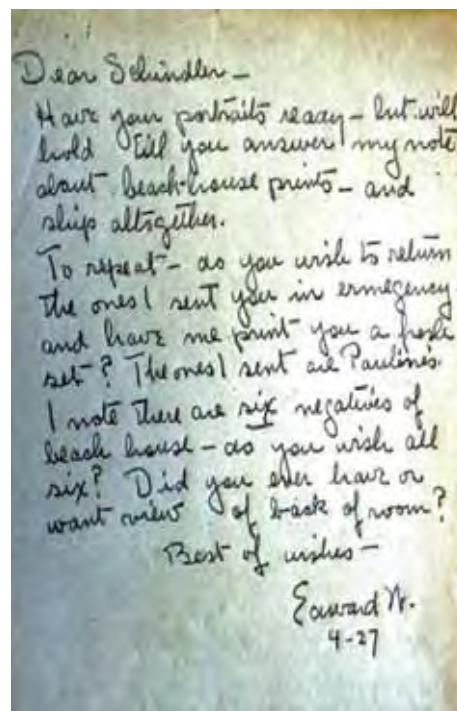 Dear Schindler –
Have your portraits ready – but will
hold till you answer my note
about beach-house prints – and
ship altogether.
To repeat – do you wish to return
the ones I sent you in ermegency
and have me print you a fresh
set? The ones I sent are Paulines.
I note there are six negatives of
beach house – do you wish all
six? Did you ever have or
want view of back of room?
Best of wishes –
Edward W.
4-27